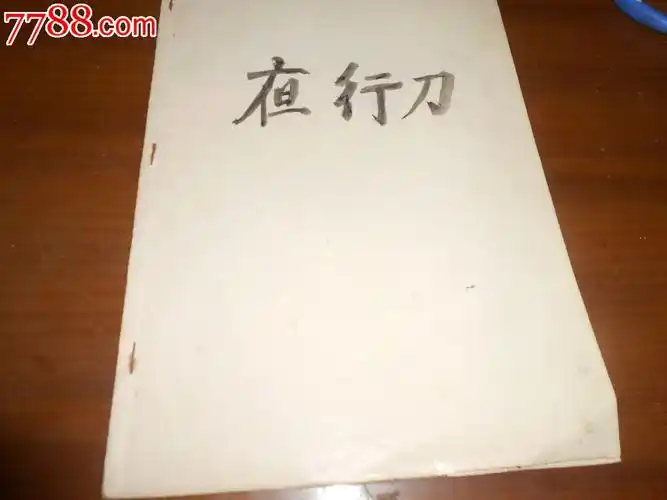 7788.com
亱行刀